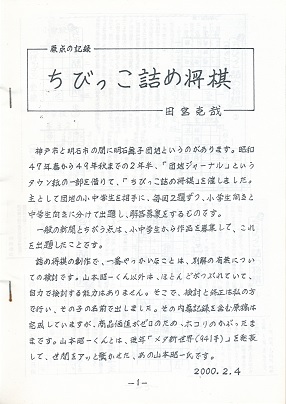 原点の記録
ちびっこ詰め将棋
田宮克哉
神戸市と明石市の間に明石舞子団地というのがあります。昭和
47年春から49年秋までの2年半、「団地ジャーナル」という
タウン紙の一部を借りて、「ちびっこ詰め将棋」を連しました。
主として団地の小中学生を相手に、毎回2題ずつ、小学生向きと
中学生向きに分けて出題し、解答募集をするものです。
一般の新聞とちがう点は、小中学生から作品を募集して、これ
を出題したことです。
詰め将棋の創作で、一番やっかいなことは、別解の有無につい
ての検討です。山本昭一くん以外は、ほとんどがつぶれていて、
自力で検討する能力はありません。そこで、検討と修正は私の方
で行い、その子の名前で出しました。その内幕記録を含む原稿は
完成していますが、商品価値がゼロのため、ホコリのかぶったま
まです。山本昭一くんとは、後年「メタ新世界(941手)」を発表
して、世間をアッと驚かせた、あの山本昭一氏です。
2000.2.4
-1-